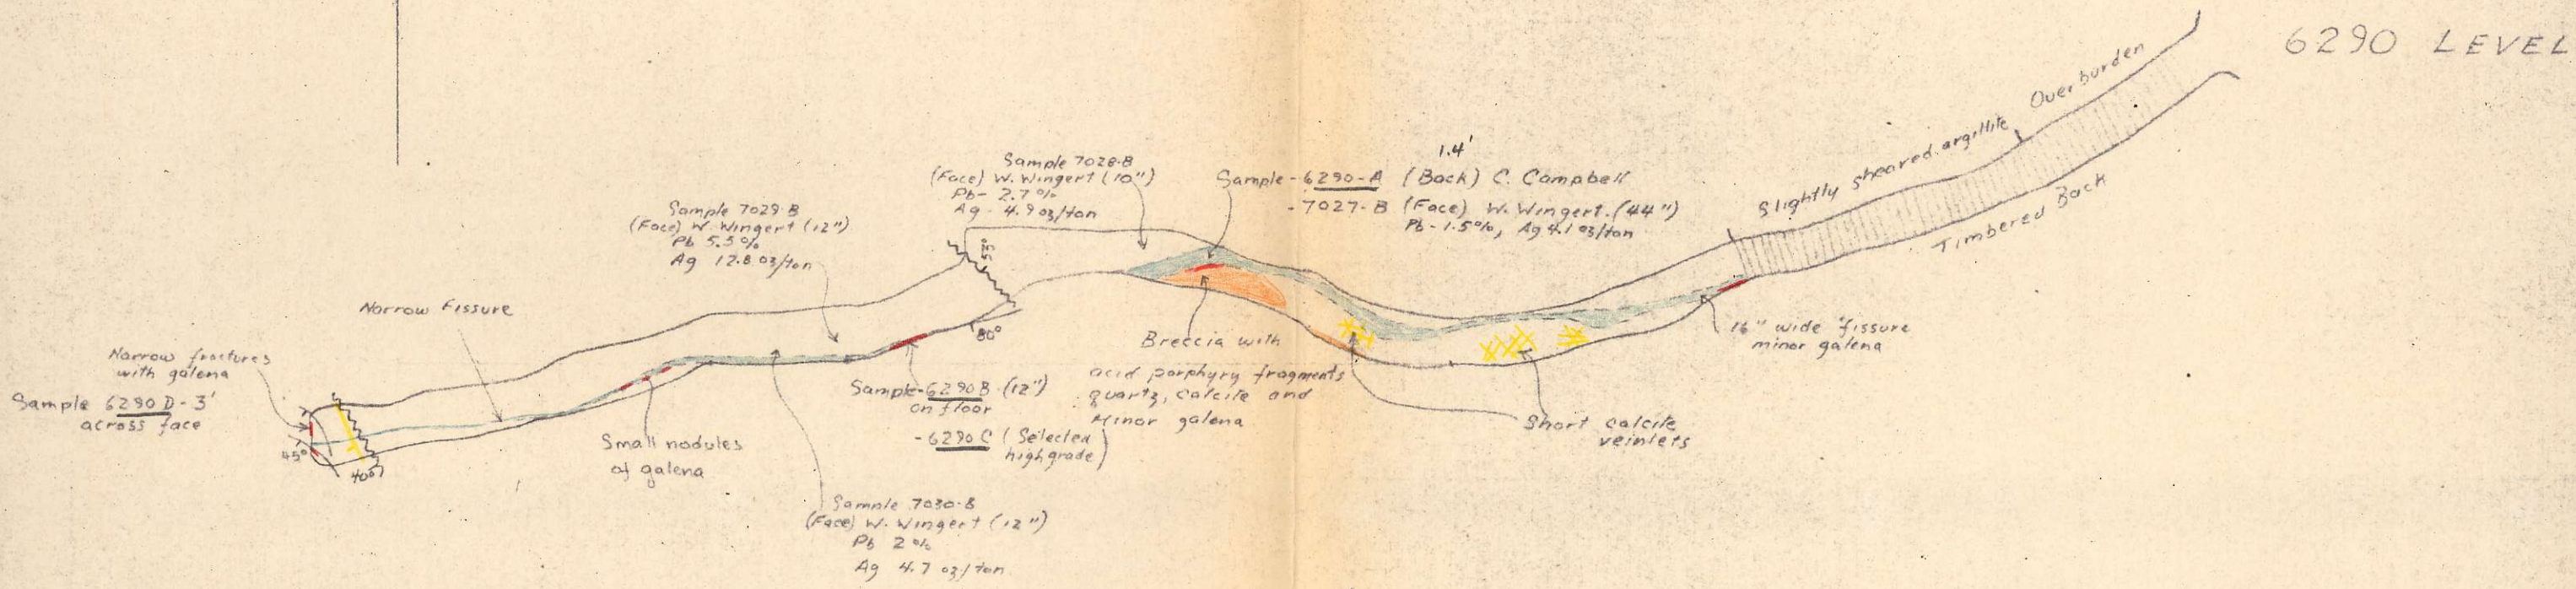 6290 LEVEL
Overburden
Slightly sheared argillite
Timbered Back
1.4'
Sample - 6290-A (Back) C. Campbell
- 7027-B (Face) W. Wingert. (44")
Pb - 1.5%, Ag 4.1 oz/ton
Sample 7028-B
(Face) W. Wingert (10")
Pb - 2.7%
Ag - 4.9 oz/ton
53°
Sample 7029-B
(Face) W. Wingert (12")
Pb 5.5%
Ag 12.8 oz/ton
Narrow Fissure
Narrow fractures
with galena
Sample 6290 D - 3'
across face
45°
40°
Small nodules
of galena
80°
Sample - 6290 B (12")
on floor
- 6290 C (Selected
high grade)
Sample 7030-B
(Face) W. Wingert (12")
Pb 2%
Ag 4.7 oz/ton
Breccia with
acid porphyry fragments
quartz, calcite and
Minor galena
Short calcite
veinlets
16" wide fissure
minor galena